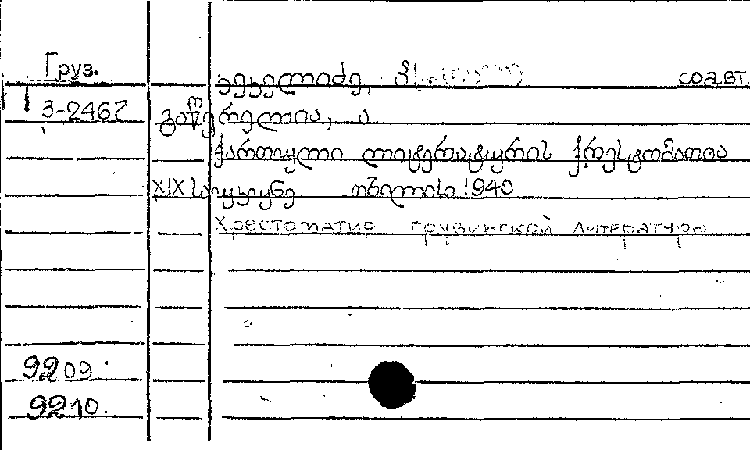 Груз.
კეკელიძე, соавт.
3-2467 გაწერელია, ა
ქართული ლიტერატურის ქრესტომათია
XIX საუკუნე თბილისი 1940
Хрестоматия грузинской литературы
9209
9210.